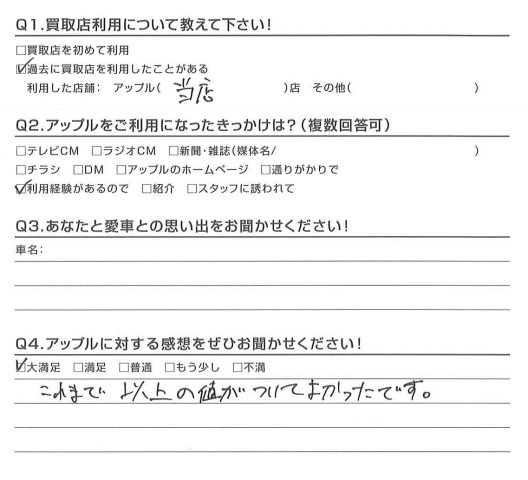 Q1.買取店利用について教えて下さい!
□買取店を初めて利用
☑過去に買取店を利用したことがある
利用した店舗: アップル( 当店 )店 その他( )
Q2.アップルをご利用になったきっかけは?(複数回答可)
□テレビCM □ラジオCM □新聞・雑誌(媒体名/ )
□チラシ □DM □アップルのホームページ □通りがかりで
☑利用経験があるので □紹介 □スタッフに誘われて
Q3.あなたと愛車との思い出をお聞かせください!
車名:
Q4.アップルに対する感想をぜひお聞かせください!
☑大満足 □満足 □普通 □もう少し □不満
これまで以上の値がついてよかったです。